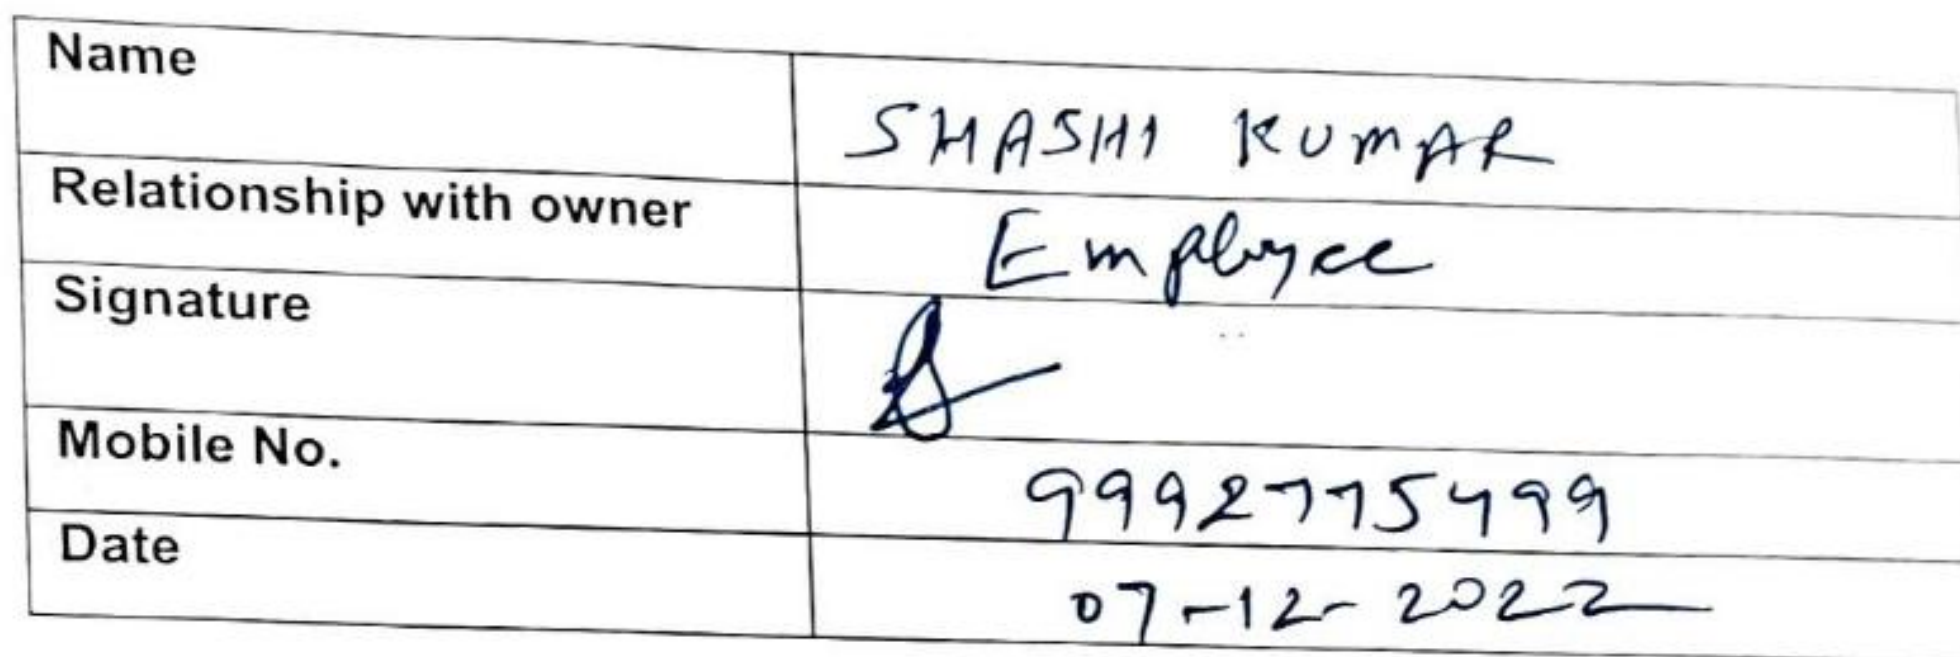 Name SHASHI KUMAR
Relationship with owner Employee
Signature
Mobile No. 9992775499
Date 07-12-2022